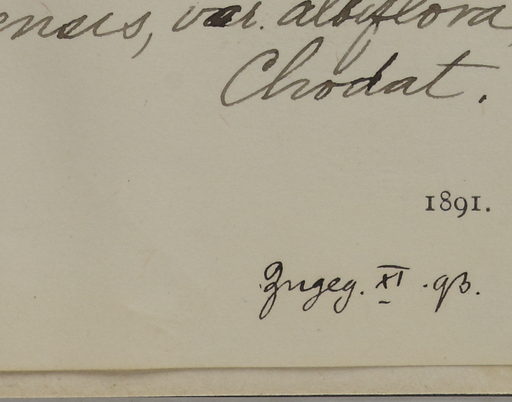 ensis, var. albiflora,
Chodat.
1891.
Zugeg. XI. 93.